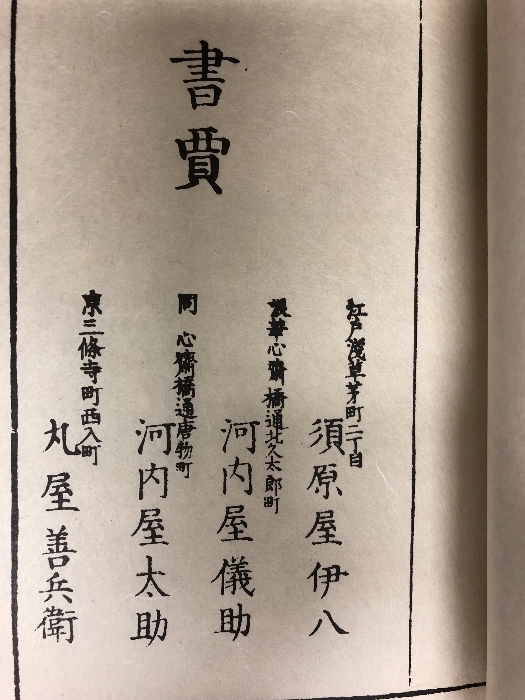 書賈
江戸淺草茅町二丁目
須原屋伊八
浪華心齋橋通北久太郎町
河内屋儀助
同 心齋橋通唐物町
河内屋太助
京三條寺町西入町
丸屋善兵衛